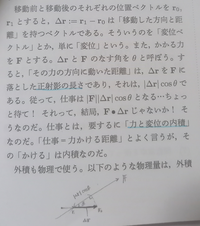 移動前と移動後のそれぞれの位置ベクトルを r₀,
r₁ とすると, Δr := r₁ − r₀ は「移動した方向と距
離」を持つベクトルである。そういうのを「変位ベ
クトル」とか, 単に「変位」という。また, かかる力
を F とする。Δr と F のなす角を θ と呼ぼう。す
ると,「その力の方向に動いた距離」は, Δr を F に
落とした正射影の長さであり, それは, |Δr| cos θ で
ある。従って, 仕事は |F||Δr| cos θ となる…ちょっ
と待て! それって, 結局, F • Δr じゃないか! そ
うなのだ。仕事とは, 要するに「力と変位の内積」
なのだ。「仕事=力かける距離」とよく言うが, そ
の「かける」は内積なのだ。
外積も物理で使う。以下のような物理量は, 外積
F
θ
Δr